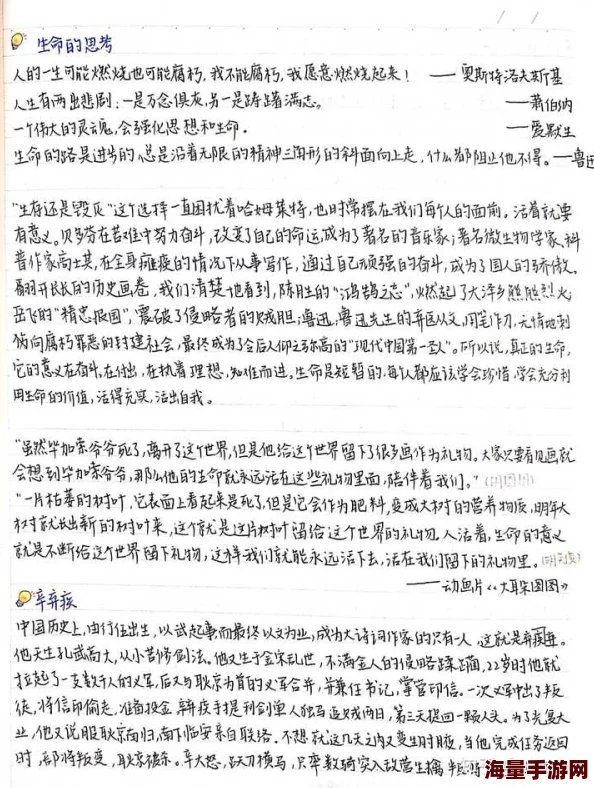 生命的思考
人的一生可能燃烧也可能腐朽,我不能腐朽,我愿意燃烧起来! ——奥斯特洛夫斯基
人生有两出悲剧:一是万念俱灰,另一是踌躇满志。 ——萧伯纳
一个伟大的灵魂,会强化思想和生命. ——爱默生
生命的路是进步的,总是沿着无限的精神三角形的斜面向上走,什么都阻止他不得。——鲁迅
"生存还是毁灭"这个选择一直困扰着哈姆莱特,也时常摆在我们每个人的面前。活着就要
有意义。贝多芬在苦难中努力奋斗,改变了自己的命运,成为了著名的音乐家;著名微生物学家、科
普作家高士其,在全身瘫痪的情况下从事写作,通过自己顽强的奋斗,成为了国人的骄傲。
翻开长长的历史画卷,我们清楚地看到,陈胜的"鸿鹄之志",燃起了大泽乡熊熊烈火;
岳飞的"精忠报国",震破了侵略者的贼胆;鲁迅,鲁迅先生的弃医从文,用笔作刀,无情地刺
向腐朽罪恶的封建社会,最终成为了令后人仰之弥高的"现代中国第一圣人"。所以说,真正的生命,
它的意义在奋斗,在付出,在执着理想,知难而进。生命是短暂的,每个人都应该学会珍惜,学会充分利
用生命的价值,活得充实,活出自我。
"虽然毕加索爷爷死了,离开了这个世界,但是他给这个世界留下了很多画作为礼物。大家只要看见画就
会想到毕加索爷爷,那么他的生命就永远活在这些礼物里面,陪伴着我们。"(胡图图)
"一片枯萎的树叶,它表面上看起来是死了,但是它会作为肥料,变成大树的营养物质,明年大
树就长出新的树叶来,这个就是这片树叶留给这个世界的礼物。人活着,生命的意义
就是不断给这个世界留下礼物,这样我们就能永远活下去,活在我们留下的礼物里。(胡英俊)
——动画片《大耳朵图图》
辛弃疾
中国历史上,由行伍出生,以武起事而最终以文为业,成为大诗词作家的只有一人,这就是辛弃疾。
他天生孔武高大,从小苦修剑法。他又生于金宋乱世,不满金人的侵略蹂躏,22岁时他就
拉起了一支数千人的义军,后又与耿京为首的义军合并,并兼任书记,掌管印信。一次义军中出了叛
徒,将信印偷走,准备投金,辛弃疾手提利剑单人独马追贼两日,第三天提回一颗人头。为了光复大
业,他又说服耿京南归,南下临安亲自联络。不想就这几天之内又变生肘腋,当他完成任务返回
时,部将叛变,耿京被杀。辛大怒,跃刀横马,只率数骑突入敌营生擒
海量手游网